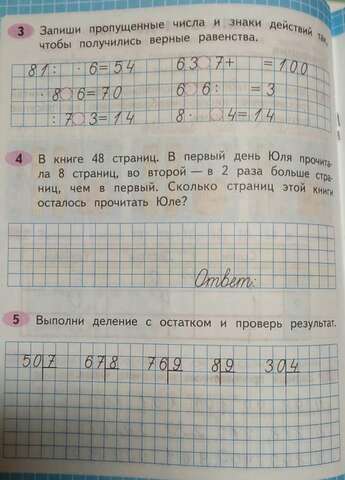 3 Запиши пропущенные числа и знаки действий так,
чтобы получились верные равенства.
81: ·6=54 63○7+ =100
·8○6=70 6○6: =3
:7○3=14 8· ○4=14
4 В книге 48 страниц. В первый день Юля прочита-
ла 8 страниц, во второй — в 2 раза больше стра-
ниц, чем в первый. Сколько страниц этой книги
осталось прочитать Юле?
Ответ:
5 Выполни деление с остатком и проверь результат.
50 7 67 8 76 9 8 9 30 4